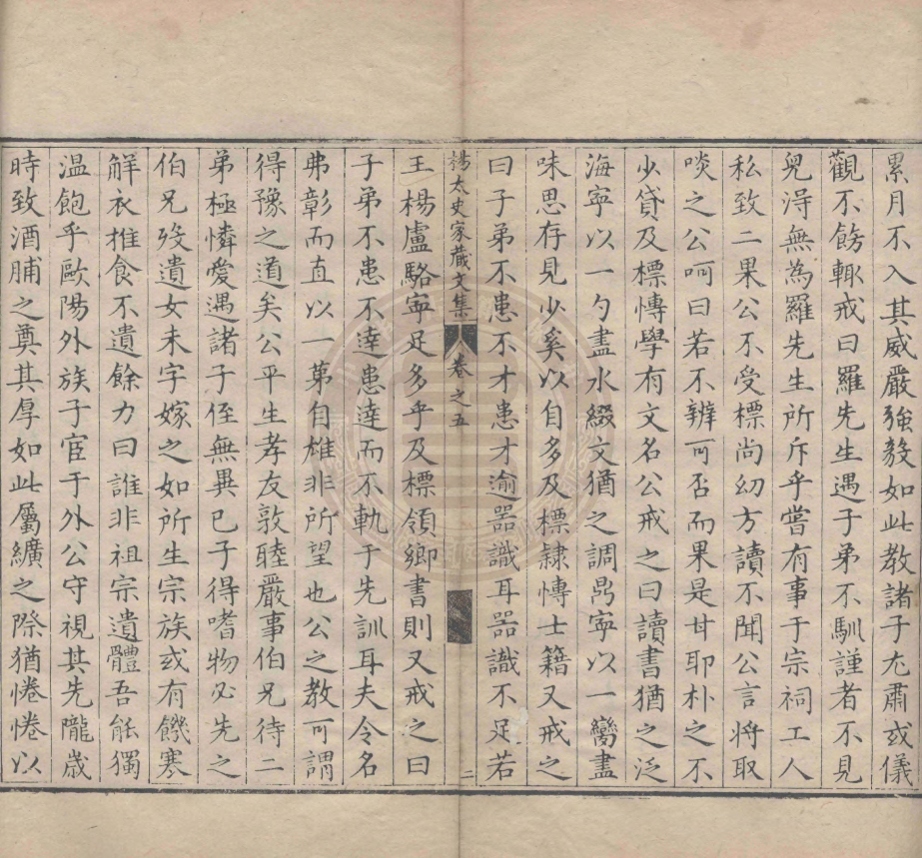 累月不入其威嚴強毅如此教諸子尤肅或儀
觀不飭輒戒曰羅先生遇子弟不馴謹者不見
兒淂無為羅先生所斥乎嘗有事于宗祠工人
私致二果公不受標尚幼方讀不聞公言將取
啖之公呵曰若不辨可否而果是甘耶朴之不
少貸及標愽學有文名公戒之曰讀書猶之泛
海寕以一勺盡水綴文猶之調鼎寕以一臠盡
味思存見少奚以自多及標隷愽士籍又戒之
曰子弟不患不才患才逾器識耳器識不足若
楊太史家藏文集
卷之五
二
王楊盧駱寕足多乎及標領鄉書則又戒之曰
子弟不患不逹患逹而不軌于先訓耳夫令名
弗彰而直以一第自雄非所望也公之教可謂
得豫之道矣公平生孝友敦睦嚴事伯兄待二
弟極憐愛遇諸子侄無異已子得嗜物必先之
伯兄歿遺女未字嫁之如所生宗族或有饑寒
觧衣推食不遺餘力曰誰非祖宗遺體吾能獨
温飽乎歐陽外族子宦于外公守視其先隴歲
時致酒脯之奠其厚如此屬纊之際猶惓惓以